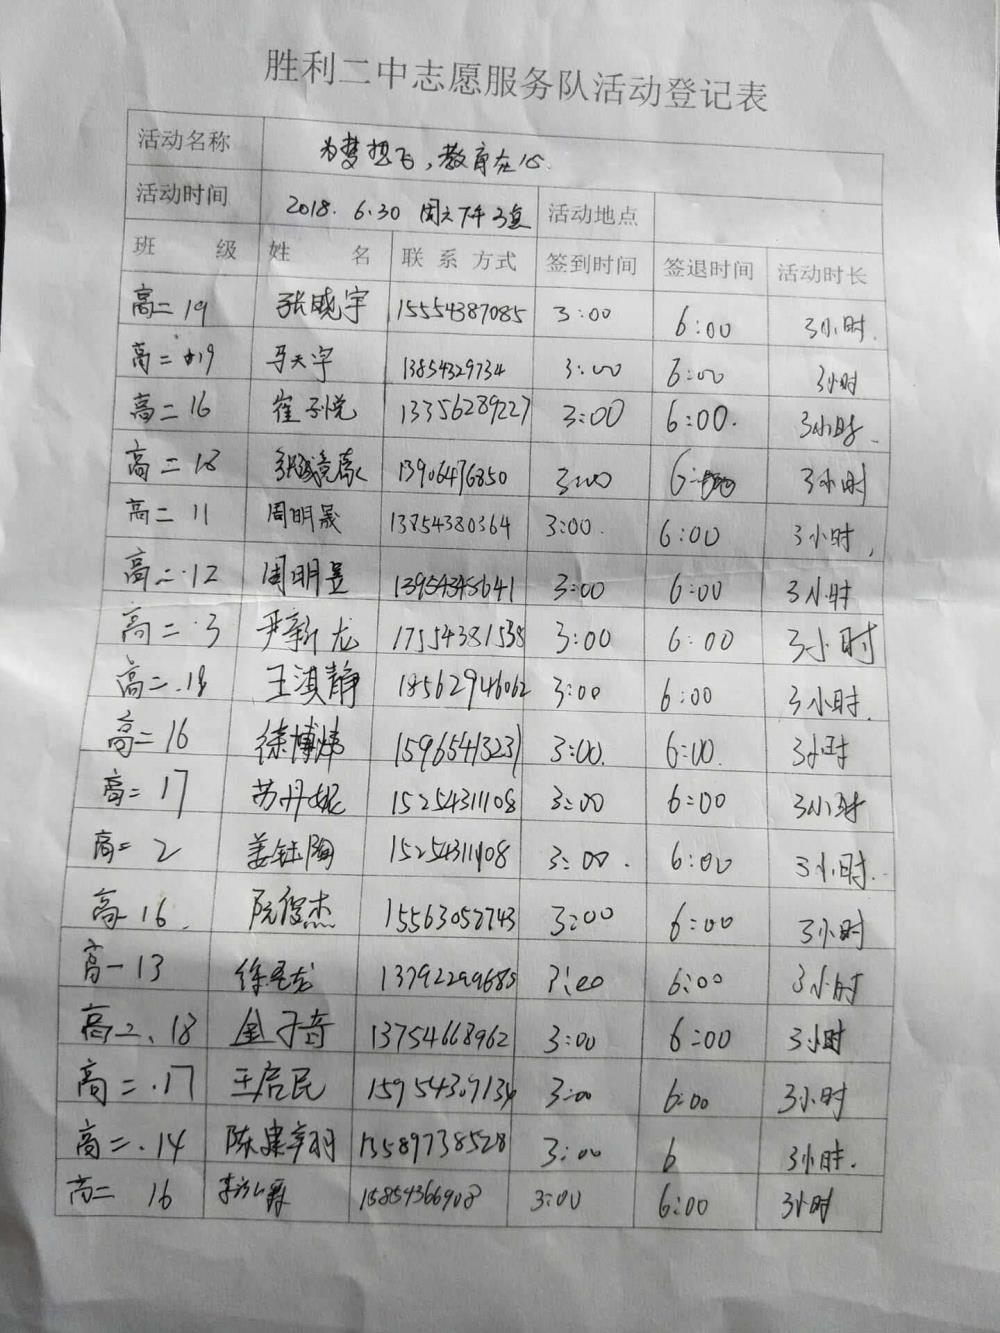 胜利二中志愿服务队活动登记表
活动名称 为梦想飞，教育在心.
活动时间 2018.6.30 周六下午3点 活动地点
班 级 姓 名 联系方式 签到时间 签退时间 活动时长
高二 19 张晓宇 15554387085 3:00 6:00 3小时.
高二 19 马天宇 13854329734 3:00 6:00 3小时
高二 16 崔子悦 13356289227 3:00 6:00. 3小时.
高二 18 13906476850 3:00 6: 3小时
高二 11 周明晟 13854380364 3:00. 6:00 3小时,
高二.12 周明昱 13954345641 3:00 6:00 3小时
高二.3 尹新龙 17554381538 3:00 6:00 3小时
高二.18 王淇静 18562946062 3:00 6:00 3小时.
高二 16 徐博炜 15965413231 3:00. 6:00. 3小时
高二 17 苏丹妮 15254311108 3:00 6:00 3小时
高二 2 姜钰陶 15254311108 3:00. 6:00 3小时.
高一 16. 阮俊杰 15563052743 3:00 6:00 3小时
高一 13 13792299685 3:00 6:00 3小时
高二、18 金子奇 13754668962 3:00 6:00 3小时
高二.17 王启民 15954309134 3:00 6:00 3小时
高二.14 陈建宇翔 13589738528 3:00 6 3小时.
高二 16 13854366908 3:00 6:00 3小时